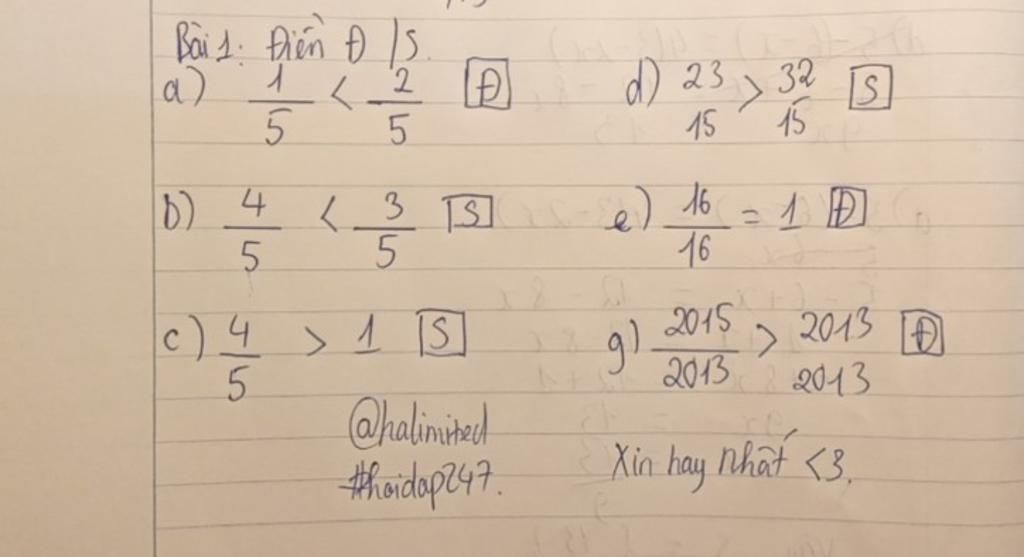 Bài 1: Điền Đ / S.
a) 1/5 < 2/5 Đ
d) 23/15 > 32/15 S
b) 4/5 < 3/5 S
e) 16/16 = 1 Đ
c) 4/5 > 1 S
g) 2015/2013 > 2013/2013 Đ
@halimited
#hoidap247.
Xin hay nhất <3.